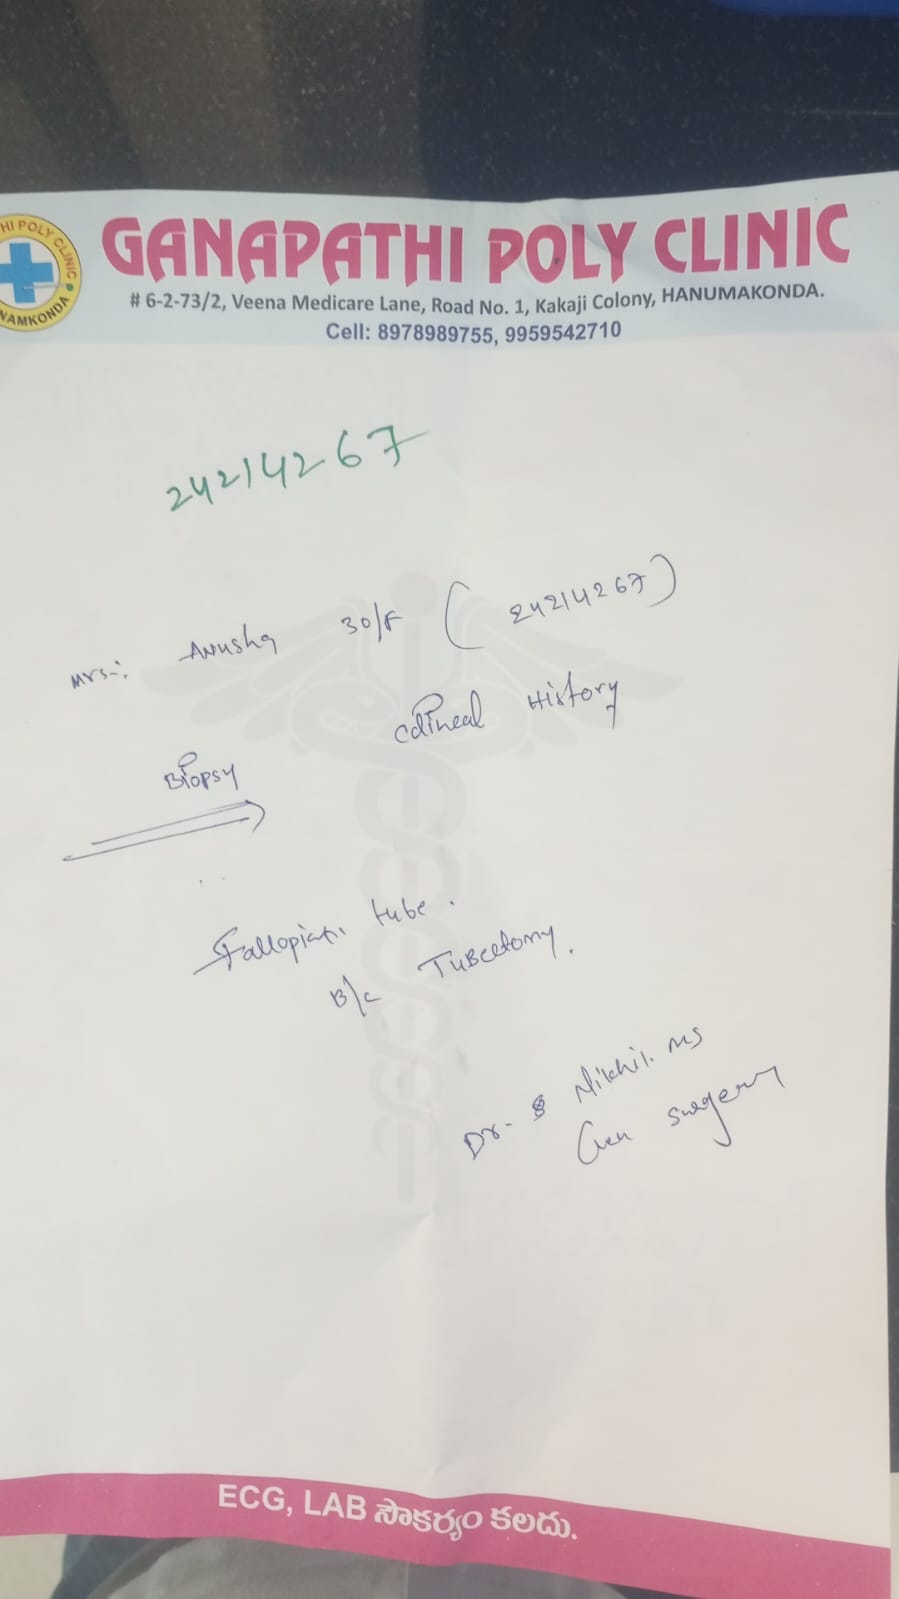 GANAPATHI POLY CLINIC
HI POLY CLINIC
NAMKONDA
# 6-2-73/2, Veena Medicare Lane, Road No. 1, Kakaji Colony, HANUMAKONDA.
Cell: 8978989755, 9959542710
24214267
Mrs-: Anusha 30/F (24214267)
Clinical History
Biopsy
Fallopian tube.
B/L Tubectomy.
Dr. S Nikhil. MS
Gen surgery
ECG, LAB సౌకర్యం కలదు.